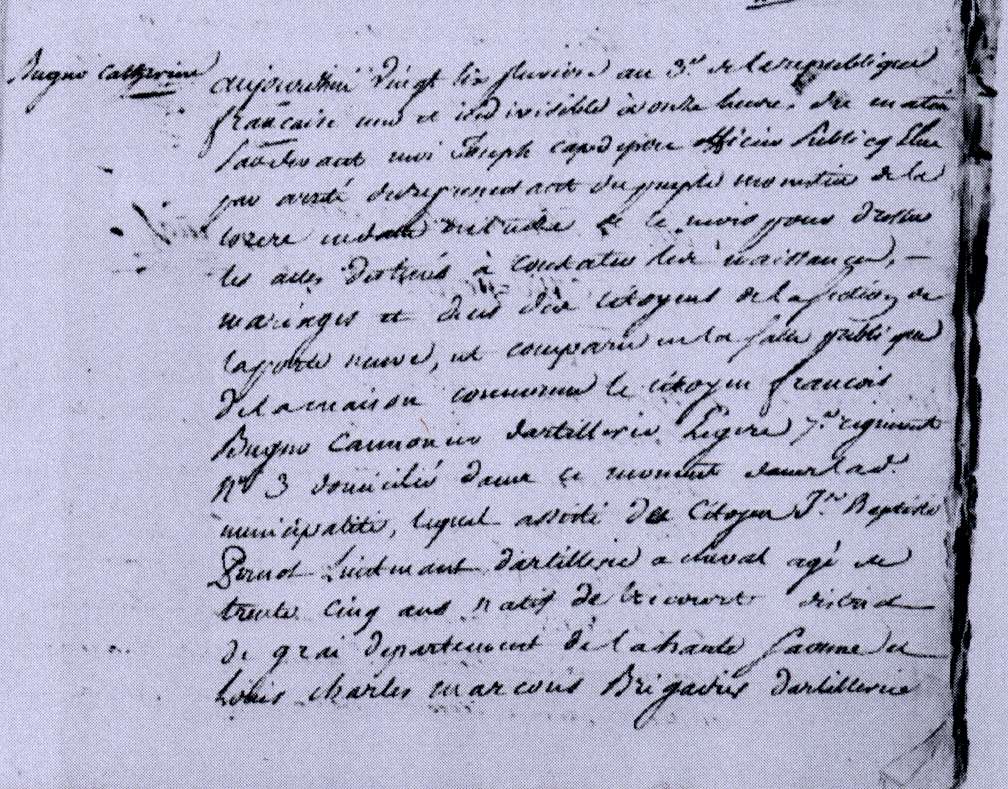 Bugno Catherine
aujourdhui vingt six pluviose an 3e de la republique
francaise une et indivisible à onze heures du matin
pardevant moi Joseph capdepon officier publicq Elu
par areté du representant du peuple en de la
et le pour dresser
les actes destinés à constater les naissances,
mariages et deces des citoyens de la section de
la porte neuve, est comparu en la salle publique
de la maison commune le citoyen francois
Bugno Cannonier dartillerie Legere 7e regiment
n° 3 domicilié dans ce moment dans lad.
municipalité, lequel assisté du Citoyen Jn Baptiste
Pernot Lieutenant dartillerie a cheval agé de
trente cinq ans natif de district
de grai departement de la haute saonne et
Louis charles marcous Brigadier dartillerie